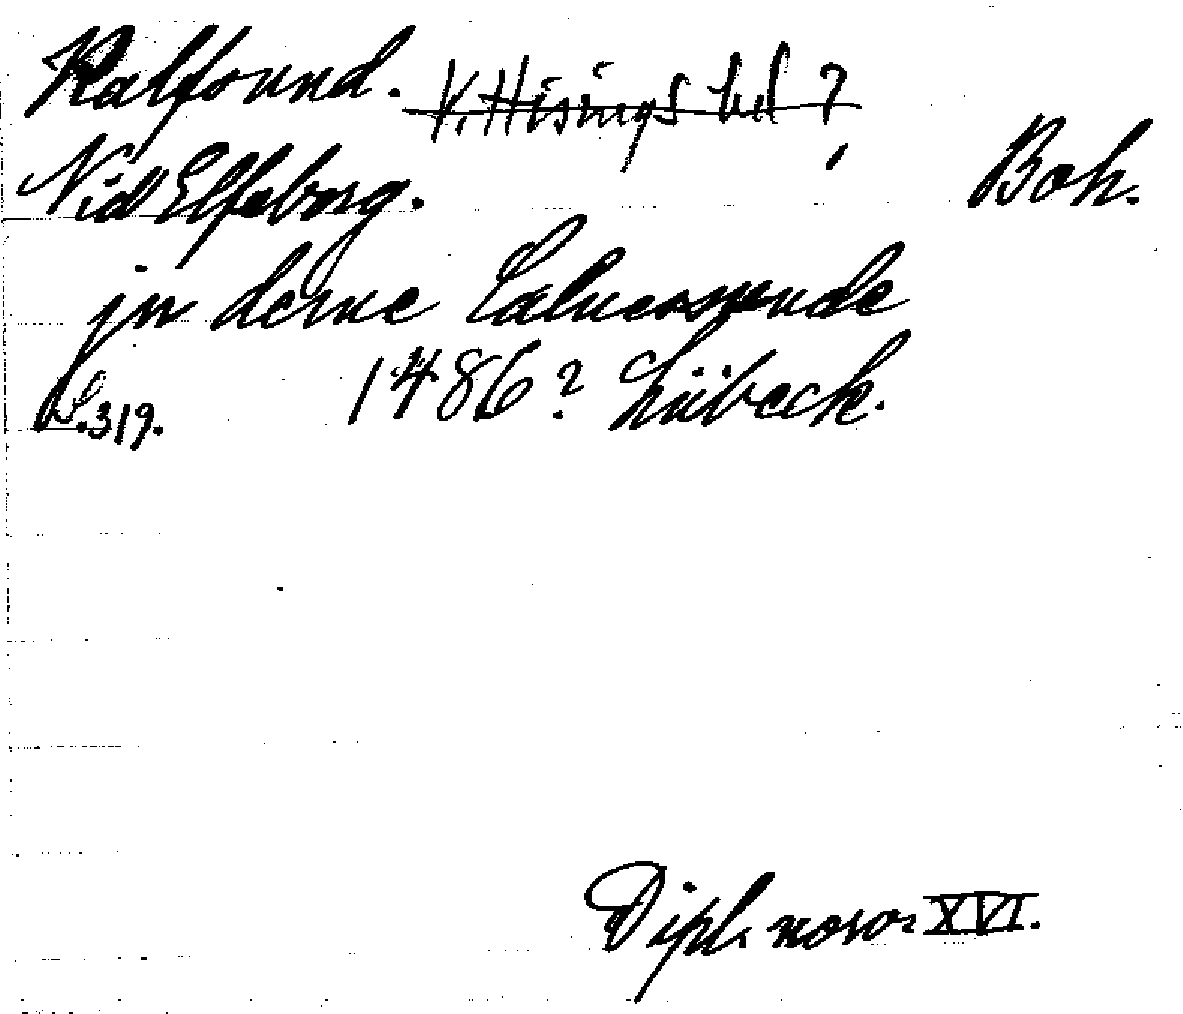 Kalfsund. V. Hisings hd ?
Vid Elfsborg. Boh.
jn deme Caluessunde
S. 319. 1486? Lübeck.
Dipl. norv. XVI.